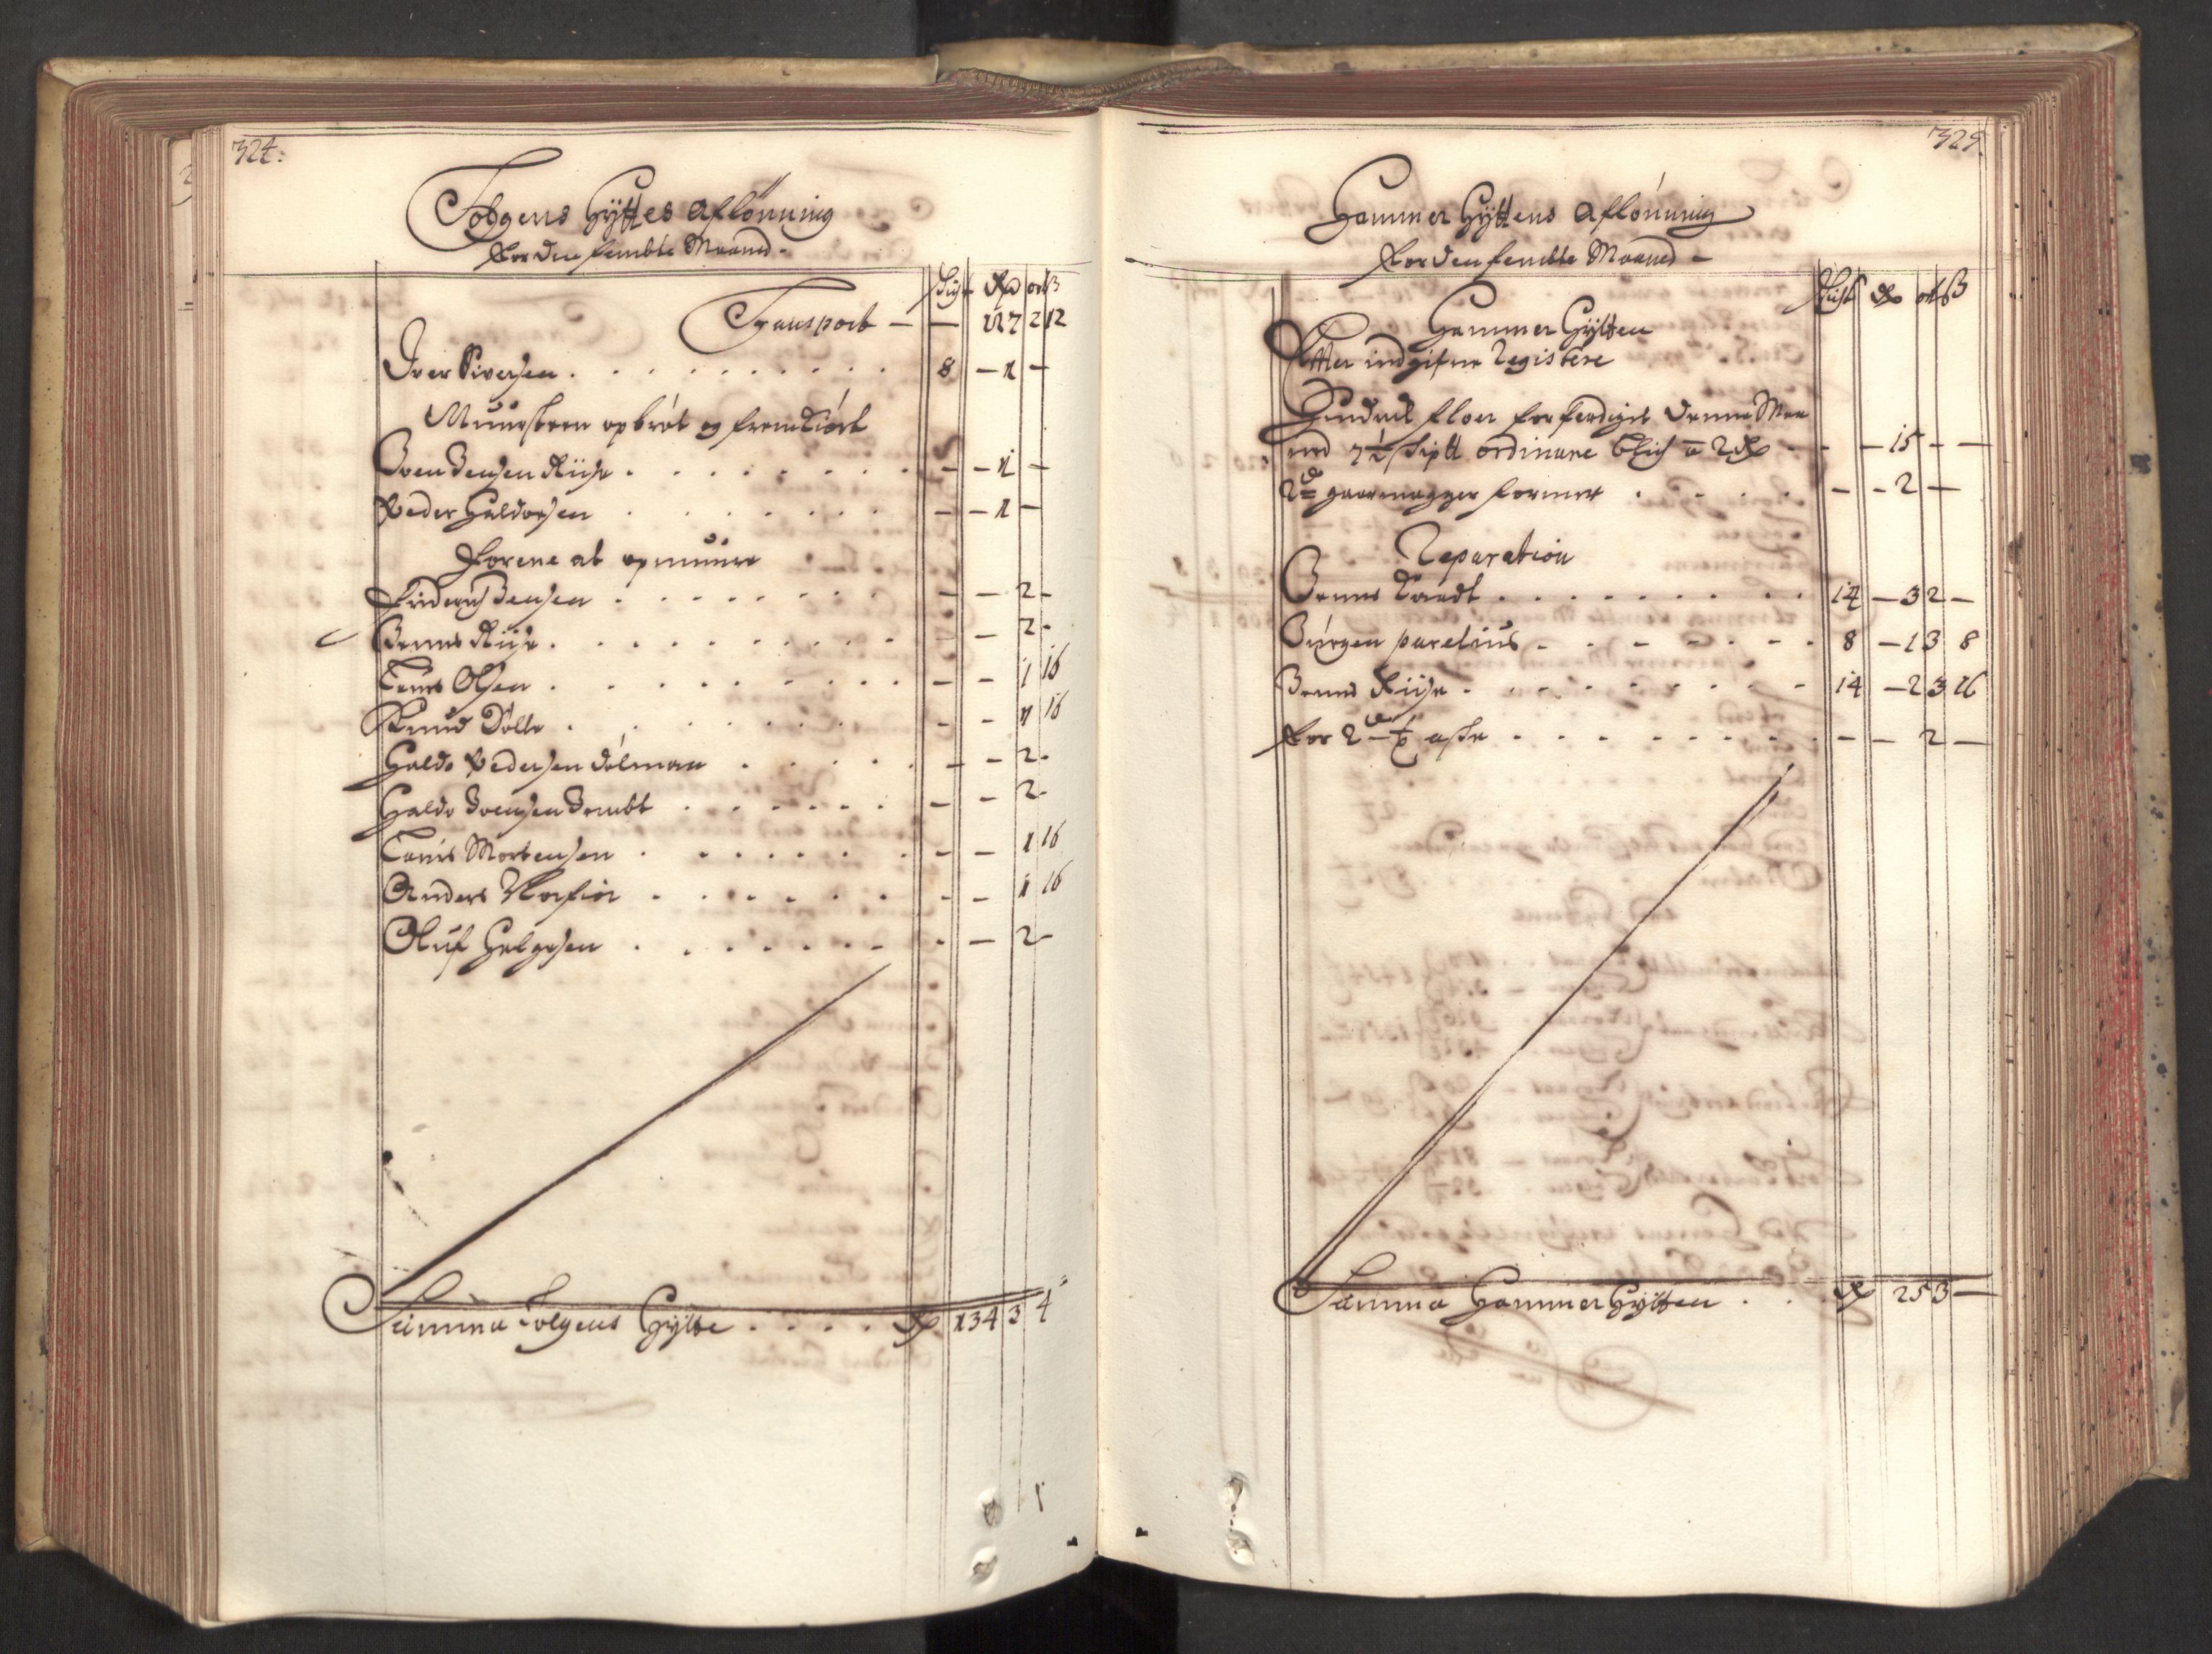 324:
Tolgens Hÿttes aflönning
For den fembte Maaned -
Schigt Rd ort ß
Transport - - 127 2 12
Iver Siversen . . . . . . . . . 8 - 1 -
Muursteen opbröt og fremkiört
Joen Jensen Riise . . . . . . . - - 1 -
Peder Haldorsen . . . . . . . - - 1 -
Forene at opmuure
Friderich Jensen . . . . . . . - - 2 -
Jenns Riise . . . . . . . . - 2 -
Lauris Olsen . . . . . . . . - - 1 16
Knud Dölle . . . . . . . - - 1 16
Haldo Pedersen dölmoe . . . . . - - 2 -
Haldo Joensen Tombt . . . . . . - - 2 -
Lauris Mortensen . . . . . . - - 1 16
Anders Norfiör . . . . . . - - 1 16
Oluf Helgesen . . . . . . - - 2 -
Summa Tolgens Hÿtte . . . . Rd 134 3 4
325.
Hammer Hÿttens aflönning
For den fembte Maaned -
Schigt Rd ort ß
Hammer Hÿtten
Efter indgifne Registere
Hindrich floer forferdiget denne Maa
ned 7 1/2 Skptt ordinare Blich a 2 Rd - - 15 - -
2de gaarmagger former . . . . - - 2 -
Reparation
Jenns Brandt . . . . . . . . . 14 - 3 2 -
Jürgen parelius . . . . . . 8 - 1 3 8
Jenns Riise . . . . . . . . 14 - 2 3 16
For 2de t aske . . . . . . . - - 2 -
Summa Hammer Hÿtten . . . Rd 25 3 -